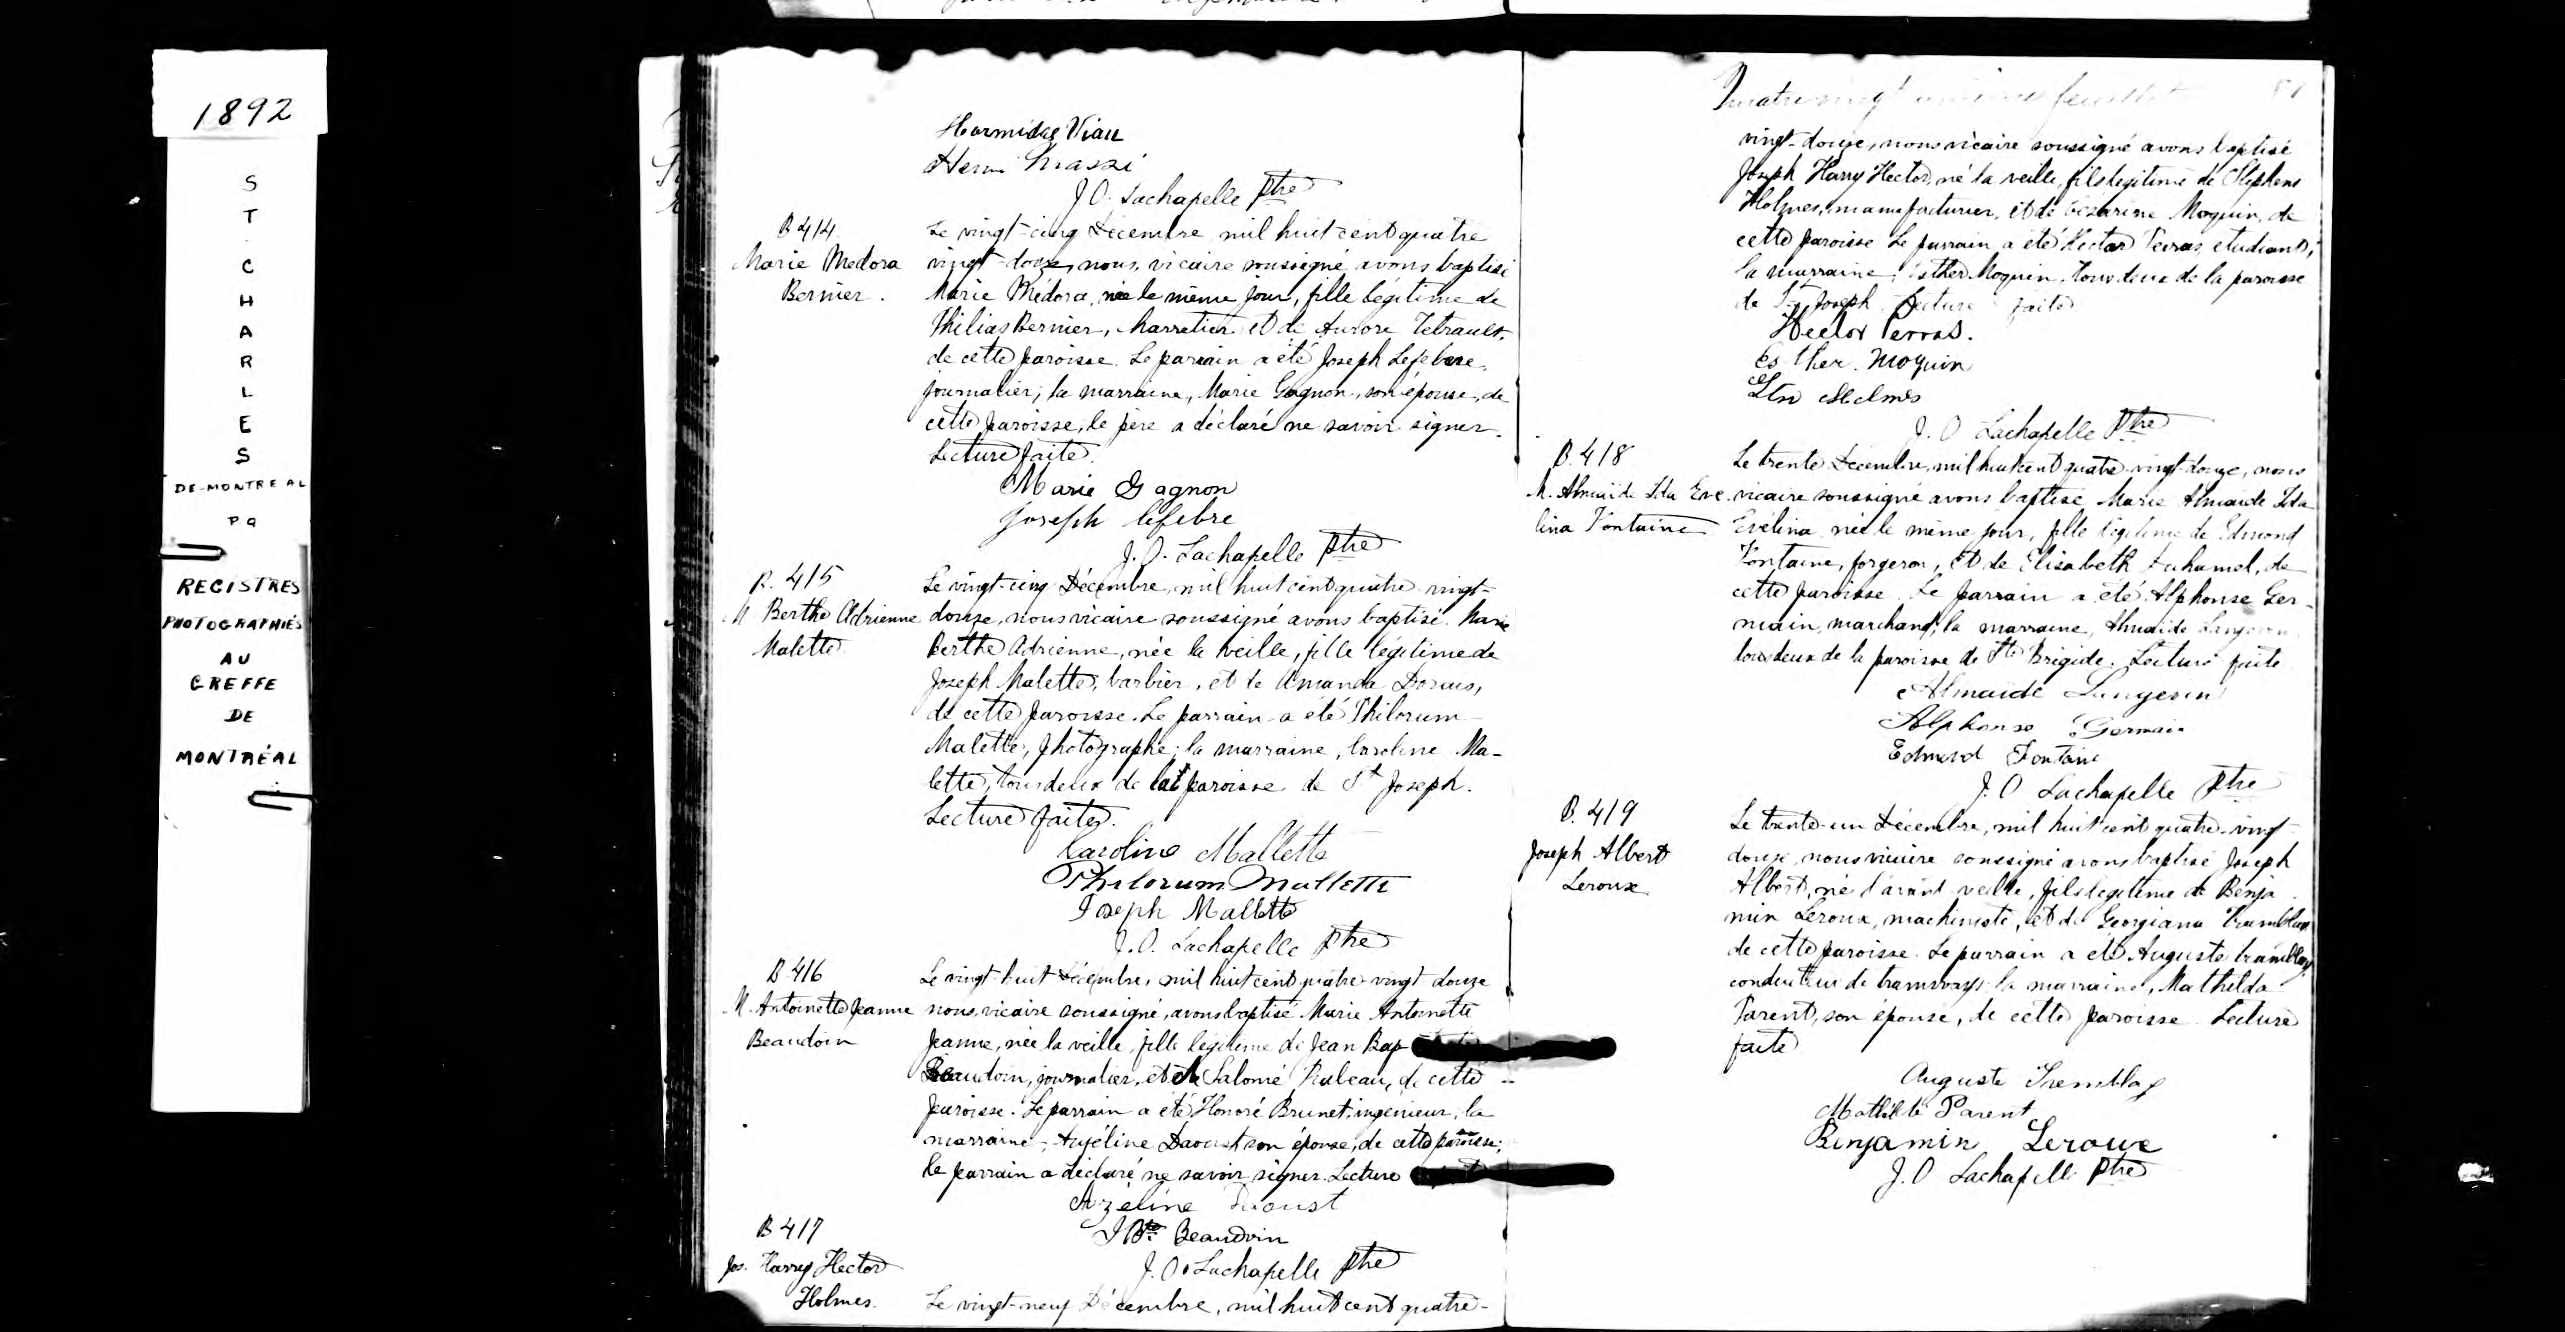 1892
S
T
.
C
H
A
R
L
E
S
DE-MONTREAL
PQ
REGISTRES
PHOTOGRAPHIÉS
AU
GREFFE
DE
MONTRÉAL
Hormidas Viau
Henri
J. O. Lachapelle Ptre
B 414.
Marie Medora
Bernier.
Le vingt-cinq Décembre mil huit cent quatre
vingt-douze, nous, vicaire soussigné avons baptisé
Marie Médora, née le même jour, fille légitime de
Philias Bernier, charretier et de Aurore Tetrault,
de cette paroisse. Le parrain a été Joseph Lefebvre,
journalier; la marraine, Marie Gagnon, son épouse, de
cette paroisse, le père a déclaré ne savoir signer.
Lecture faite.
Marie Gagnon
Joseph lefebre
J. O. Lachapelle Ptre
B. 415
M Berthe Adrienne
Malette
Le vingt-cinq Décembre, mil huit cent quatre vingt-
douze, nous vicaire soussigné avons baptisé. Marie
Berthe Adrienne, née la veille, fille légitime de
Joseph Malette, barbier, et de Amanda
de cette paroisse. Le parrain a été Philorum
Malette, photographe; la marraine, Caroline Ma-
lette, tous deux de la paroisse de St Joseph.
Lecture faite.
Caroline Mallette
Philorum Mallette
Joseph Mallette
J. O. Lachapelle Ptre
B 416
M. Antoinette Jeanne
Beaudoin
Le vingt huit Décembre, mil huit cent quatre-vingt douze
nous, vicaire soussigné, avons baptisé Marie Antoinette
Jeanne, née la veille, fille légitime de Jean Bap
Beaudoin, journalier, et de Salomé Truleau, de cette
paroisse. Le parrain a été Honoré Brunet, ingénieur, la
marraine, Azéline Daoust son épouse, de cette paroisse;
le parrain a déclaré ne savoir signer. Lecture
Azéline Daoust
J Bte Beaudoin
J. O. Lachapelle Ptre
B 417
Jos. Harry Hector
Holmes.
Le vingt-neuf Décembre, mil huit cent quatre-
Quatre vingt feuillet
vingt-douze, nous vicaire soussigné avons baptisé
Joseph Harry Hector, né la veille, fils légitime de Stephens
Holmes, manufacturier, et de Cezarine Moquin, de
cette paroisse. Le parrain a été Hector Perras, étudiant;
la marraine, Esther Moquin, tous deux de la paroisse
de St Joseph. Lecture faite
Hector Perras.
Esther. Moquin
J. O Lachapelle Ptre
B. 418
M. Almaide Ida Eve
lina Fontaine
Le trente Décembre, mil huit cent quatre-vingt-douze, nous
vicaire soussigné avons baptisé Marie Almaide Ida
Evélina, née le même jour, fille légitime de Edmond
Fontaine, forgeron, et de Elisabeth Duhamel, de
cette paroisse. Le parrain a été Alphonse Ger-
main, marchand; la marraine, Almaide Langevin
tous deux de la paroisse de Ste Brigide. Lecture faite
Almaide Langevin
Alphonse Germain
Edmond Fontaine
J. O Lachapelle Ptre
B. 419
Joseph Albert
Leroux
Le trente-un Décembre, mil huit cent quatre-vingt
douze, nous vicaire soussigné avons baptisé Joseph
Albert, né l'avant veille, fils légitime de Benja
min Leroux, machiniste, et de Georgiana Tremblay
de cette paroisse. Le parrain a été Auguste Tremblay
conducteur de tramways la marraine, Mathilda
Parent, son épouse, de cette paroisse. Lecture
faite
Auguste Tremblay
Mathilde Parent
Benjamin Leroux
J. O Lachapelle Ptre